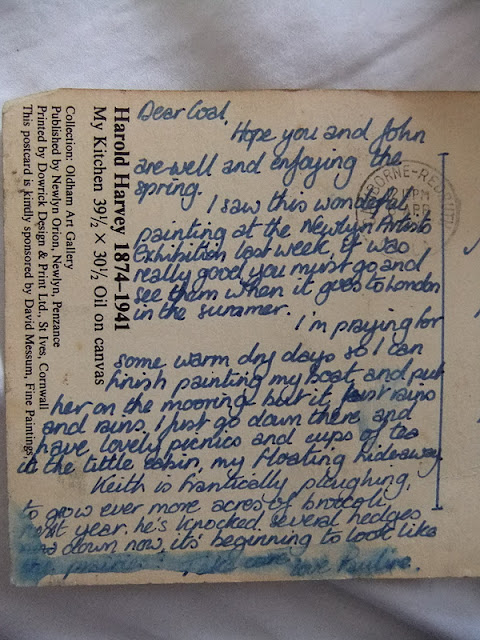 Harold Harvey 1874–1941
My Kitchen 39½ × 30½ Oil on canvas
Collection: Oldham Art Gallery
Published by Newlyn Orion, Newlyn, Penzance
Printed by Dowrick Design & Print Ltd., St Ives, Cornwall
This postcard is kindly sponsored by David Messum, Fine Paintings,
BORNE-REDRUTH
Dear Coal.
Hope you and John
are well and enjoying the
spring.
I saw this wonderful
painting at the Newlyn Artists
Exhibition last week, it was
really good you must go and
see them when it goes to London
in the summer.
I'm praying for
some warm dry days so I can
finish painting my boat and put
her on the mooring. but it just rains
and rains. I just go down there and
have lovely picnics and cups of tea
in the little cabin, my floating hideaway.
Keith is frantically ploughing,
to grow ever more acres of brocoli
next year. he's knocked several hedges
down now, it's beginning to look like
prairie. Take care. Love Pauline.